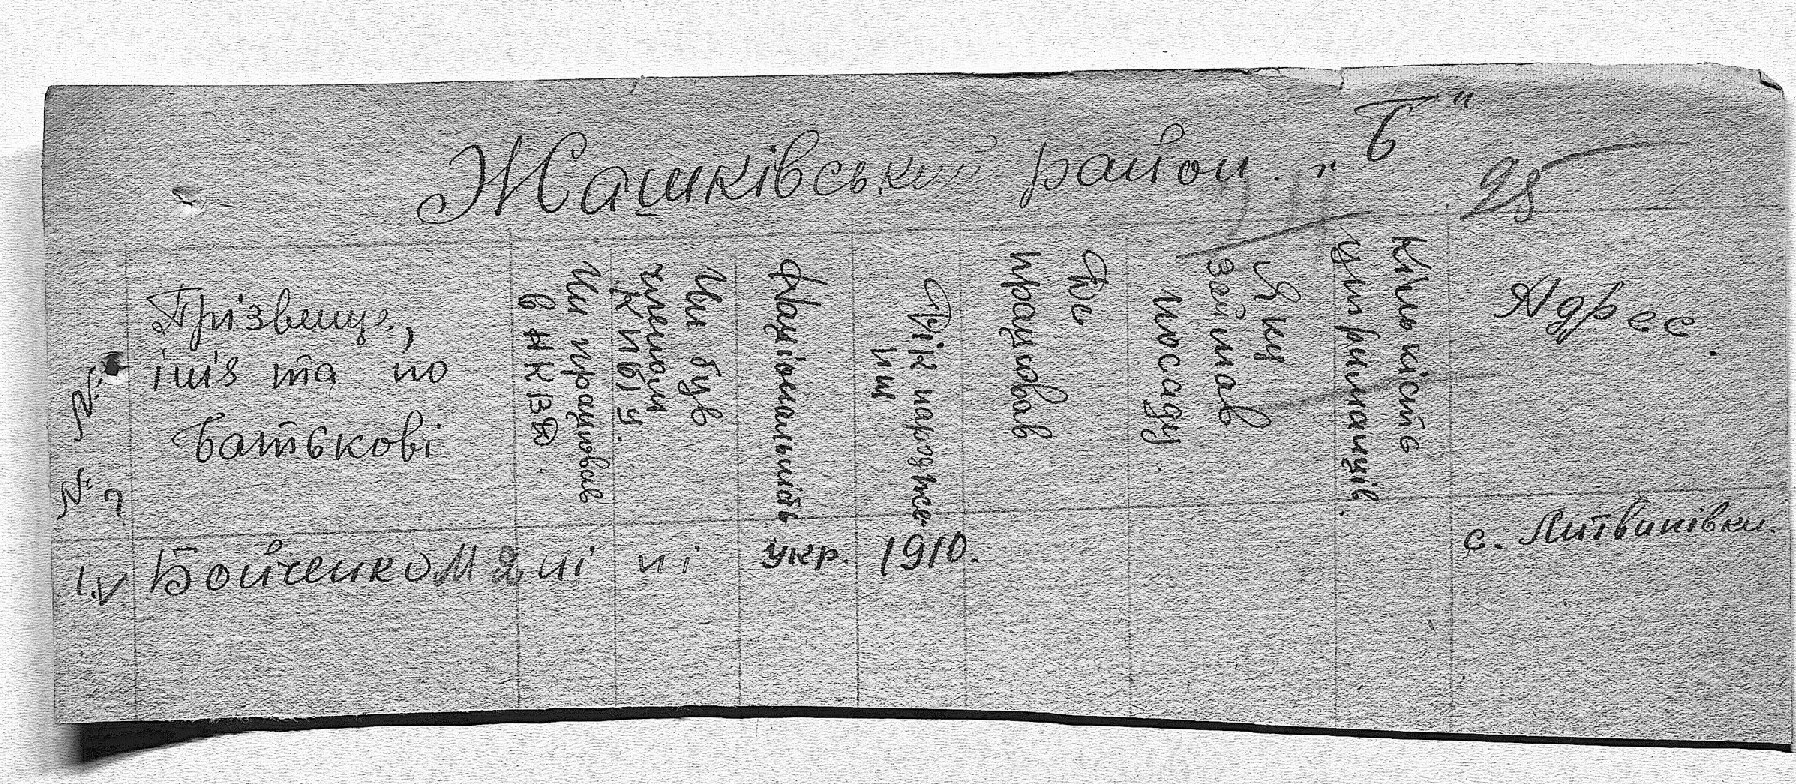 Жашківський район. „Б"
25
№ №
Прізвище,
імя та по
батькові
Чи працював
в НКВД.
Чи був
членом
КП(б)У.
Національність
Рік народже
ння
Де
працював
Яку
займав
посаду.
Кількість
утриманців.
Адрес.
1. V Бойченко М Я ні ні укр. 1910. с. Литвинівки.